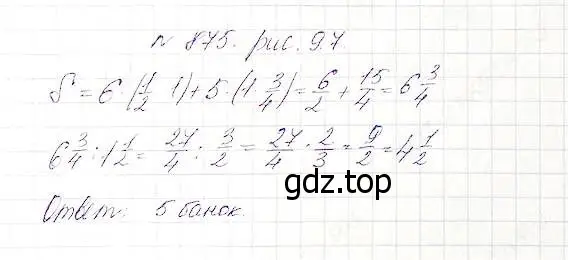 № 875. рис. 9.7
S = 6 · (1/2 · 1) + 5 · (1 · 3/4) = 6/2 + 15/4 = 6 3/4
6 3/4 : 1 1/2 = 27/4 : 3/2 = 27/4 · 2/3 = 9/2 = 4 1/2
gdz.top
Ответ: 5 банок.